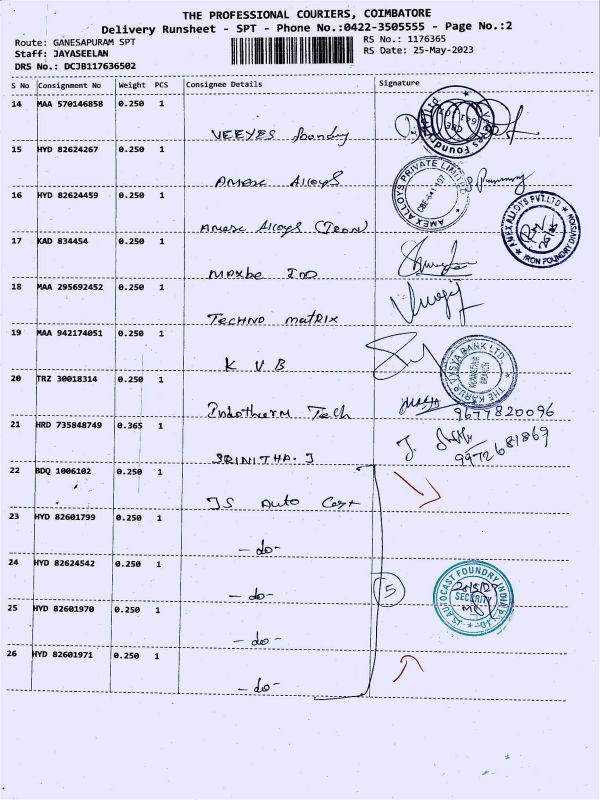 THE PROFESSIONAL COURIERS, COIMBATORE
Delivery Runsheet - SPT - Phone No.:0422-3505555 - Page No.:2
Route: GANESAPURAM SPT
RS No.: 1176365
Staff: JAYASEELAN
RS Date: 25-May-2023
DRS No.: DCJB117636502
S No Consignment No Weight PCS Consignee Details Signature
14 MAA 570146858 0.250 1
VEEYES foundry
Veeyes Foundry
15 HYD 82624267 0.250 1
Amex Alloys
AMEX ALLOYS PRIVATE LIMITED
CBE-641 107
16 HYD 82624459 0.250 1
Amex Alloys (Iron)
AMEX ALLOYS PVT.LTD
IRON FOUNDRY DIVISION
17 KAD 834454 0.250 1
18 MAA 295692452 0.250 1
Techno matrix
19 MAA 942174051 0.250 1
K V B
THE KARUR VYSYA BANK LTD.
BRANCH
20 TRZ 30018314 0.250 1
Indotherm Tech
9677820096
21 HRD 735848749 0.365 1
SRINITHA.J
9972681869
22 BDQ 1006102 0.250 1
JS Auto Cast
23 HYD 82601799 0.250 1
-do-
24 HYD 82624542 0.250 1
-do-
5
JS AUTOCAST FOUNDRY INDIA P LTD
SECURITY
25 HYD 82601970 0.250 1
-do-
26 HYD 82601971 0.250 1
-do-